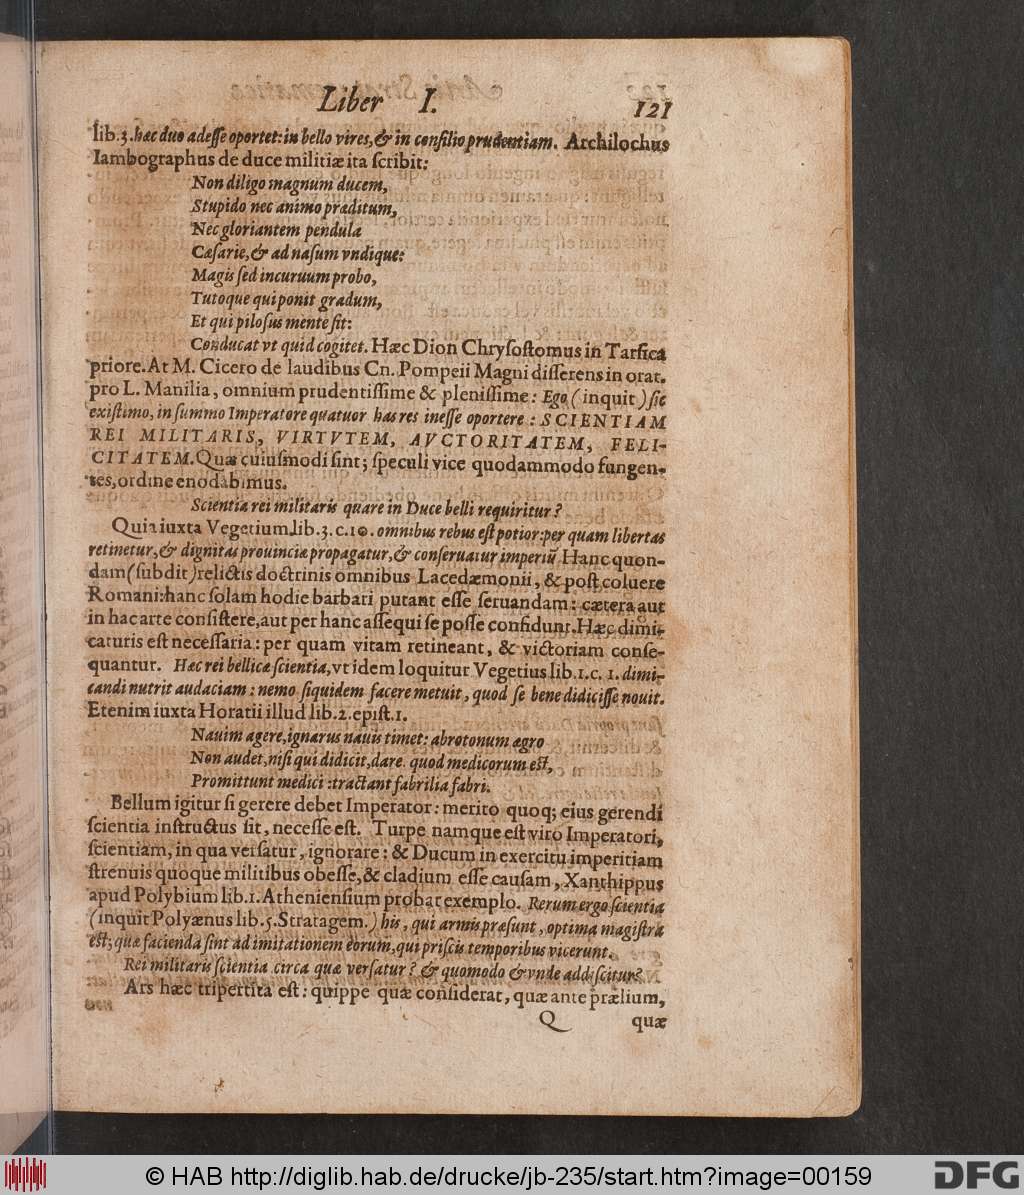 Liber I. 121
lib.3.hæc duo adeſſe oportet: in bello vires, & in conſilio prudentiam. Archilochus
Iambographus de duce militiæ ita ſcribit:
Non diligo magnum ducem,
Stupido nec animo præditum,
Nec gloriantem pendula
Cæſarie, & ad naſum vndique:
Magis ſed incuruum probo,
Tutoque qui ponit gradum,
Et qui piloſus mente ſit:
Conducat vt quid cogitet. Hæc Dion Chryſoſtomus in Tarſica
priore. At M. Cicero de laudibus Cn. Pompeii Magni diſſerens in orat.
pro L. Manilia, omnium prudentiſſime & pleniſſime: Ego (inquit) ſic
exiſtimo, in ſummo Imperatore quatuor has res ineſſe oportere: SCIENTIAM
REI MILITARIS, VIRTVTEM, AVCTORITATEM, FELI-
CITATEM. Quæ cuiuſmodi ſint; ſpeculi vice quodammodo fungen-
tes, ordine enodabimus.
Scientia rei militaris quare in Duce belli requiritur?
Quia iuxta Vegetium lib.3.c.10. omnibus rebus eſt potior: per quam libertas
retinetur, & dignitas prouinciæ propagatur, & conſeruatur imperiū Hanc quon-
dam (ſubdit) relictis doctrinis omnibus Lacedæmonii, & poſt coluere
Romani: hanc ſolam hodie barbari putant eſſe ſeruandam: cætera aut
in hac arte conſiſtere, aut per hanc aſſequi ſe poſſe confidunt. Hæc dimi-
caturis eſt neceſſaria: per quam vitam retineant, & victoriam conſe-
quantur. Hæc rei bellicæ ſcientia, vt idem loquitur Vegetius lib.1.c. 1. dimi-
candi nutrit audaciam: nemo ſiquidem facere metuit, quod ſe bene didiciſſe nouit.
Etenim iuxta Horatii illud lib.2.epiſt.1.
Nauim agere, ignarus nauis timet: abrotonum ægro
Non audet, niſi qui didicit, dare. quod medicorum eſt,
Promittunt medici: tractant fabrilia fabri.
Bellum igitur ſi gerere debet Imperator: merito quoq; eius gerendi
ſcientia inſtructus ſit, neceſſe eſt. Turpe namque eſt viro Imperatori,
ſcientiam, in qua verſatur, ignorare: & Ducum in exercitu imperitiam
ſtrenuis quoque militibus obeſſe, & cladium eſſe cauſam, Xanthippus
apud Polybium lib.1. Athenienſium probat exemplo. Rerum ergo ſcientia
(inquit Polyænus lib.5. Stratagem.) his, qui armis præſunt, optima magiſtra
eſt; quæ facienda ſint ad imitationem eorum, qui priſcis temporibus vicerunt.
Rei militaris ſcientia circa quæ verſatur? & quomodo & vnde addiſcitur?
Ars hæc tripertita eſt: quippe quæ conſiderat, quæ ante prælium,
Q quæ
© HAB http://diglib.hab.de/drucke/jb-235/start.htm?image=00159
DFG